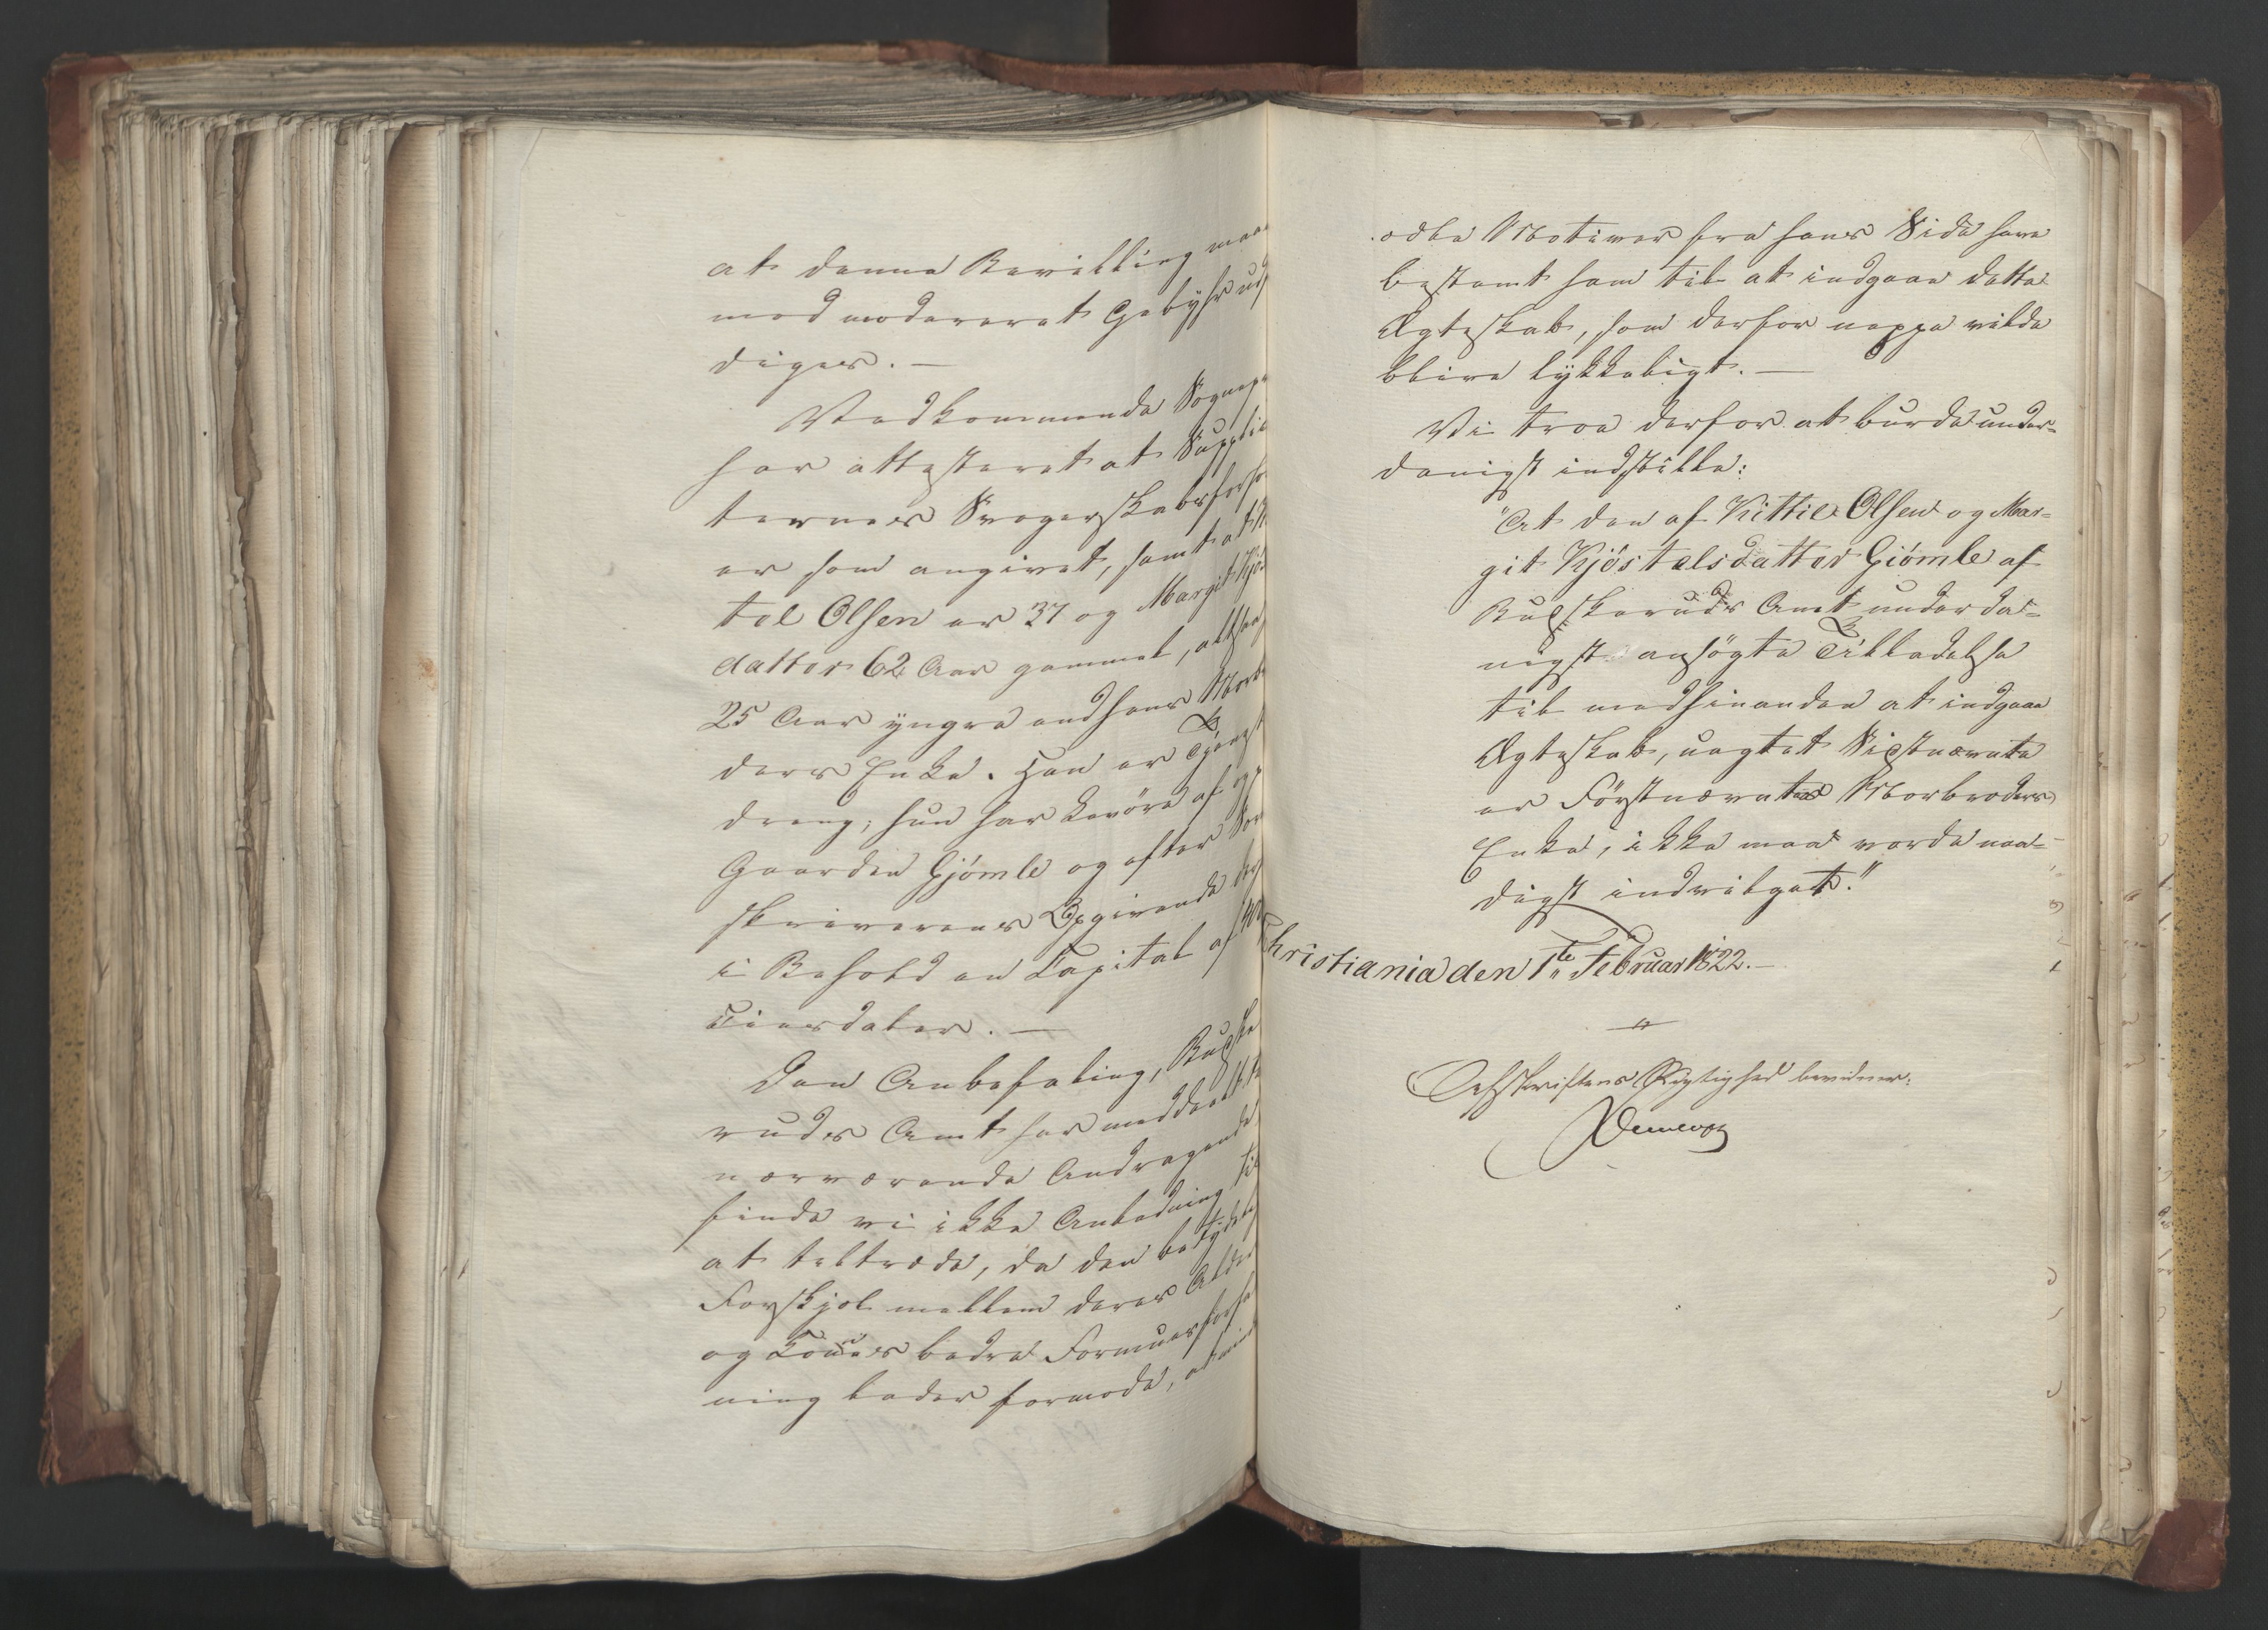 at denne Bevilling maa
med modereret Gebyhr ud
diges. —
Vedkommende Sognep
har attesteret at Supplic
ternes Svogerskabsforho
er som angivet, samt at K
tel Olsen er 37 og Margit Kjös
datter 62 Aar gammel, altsaa
25 Aar yngre end hans Morb
ders Enke. Han er Tjenest
dreng; hun har Levöre af
Gaarden Gjömle og efter Sor
skriverens Opgivende des
i Behold en Capital af 400
Species­daler. —
Den Anbefaling, Buske
ruds Amt har meddeelt
nærværende Andragende
finde vi ikke Anledning til
at tiltræde, da den betydel
Forskjel mellem deres Alder
og Konens bedre Formuesforfa
ning lader formode, at min
ædle Motiver fra hans Side have
bestemt ham til at indgaae dette
Ægteskab, som derfor neppe vilde
blive lykkeligt. —
Vi troe derfor at burde under-
danigst indstille:
"At den af Kittil Olsen og Mar-
git Kjöstelsdatter Giömle af
Buskeruds Amt underda-
nigst ansögte Tilladelse
til med hinanden at indgaae
Ægteskab, uagtet Sidstnævnte
er Förstnævntes Morbroders
Enke, ikke maa vorde naa-
digst indvilget."
Christiania den 1te Februar 1822. —
Afskriftens Rigtighed bevidner: